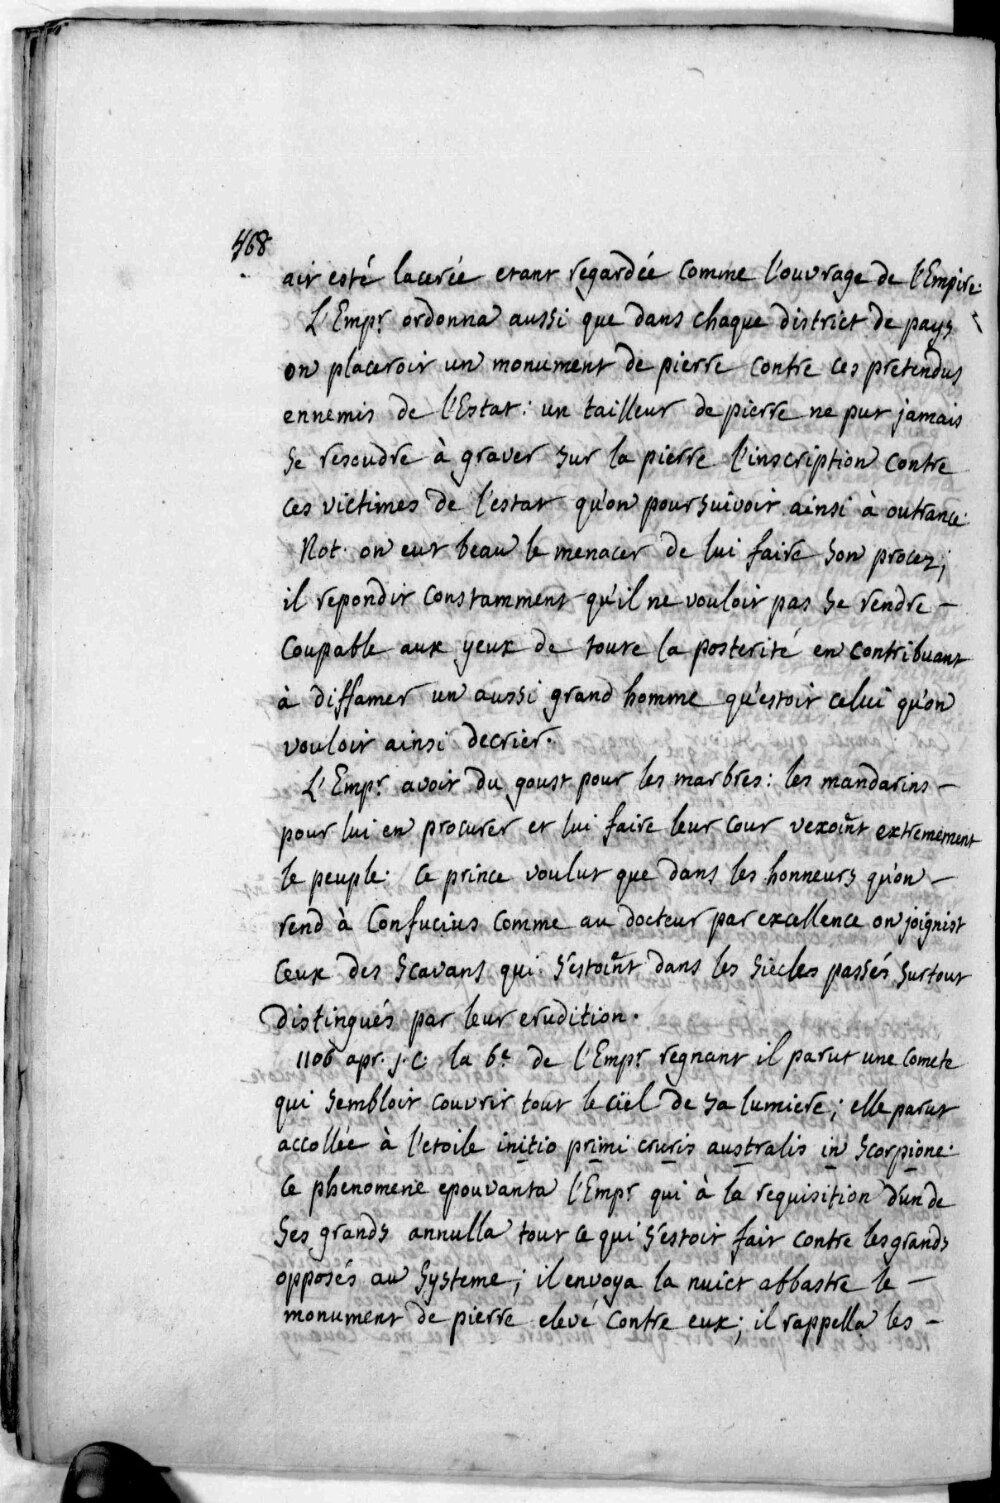 468
ait esté lacerée etant regardée comme l'ouvrage de l'Empire.
L'Empr. ordonna aussi que dans chaque district de pays
on placeroit un monument de pierre contre ces pretendus
ennemis de l'Estat: un tailleur de pierre ne put jamais
se resoudre à graver sur la pierre l'inscription contre
ces victimes de l'estat qu'on poursuivoit ainsi à outrance.
Not. on eut beau le menacer de lui faire son procez;
il repondit constamment qu'il ne vouloit pas se rendre –
coupable aux yeux de toute la posterité en contribuant
à diffamer un aussi grand homme qu'estoit celui qu'on
vouloit ainsi decrier.
L'Empr. avoit du goust pour les marbres: les mandarins –
pour lui en procurer et lui faire leur cour vexoint extremement
le peuple. Ce prince voulut que dans les honneurs qu'on –
rend à Confucius comme au docteur par excellence on joignist
ceux des scavans qui s'estoint dans les siecles passés surtout
distingués par leur erudition.
1106 apr. J. C. la 6e de l'Empr. regnant il parut une comete
qui sembloit couvrir tout le ciel de sa lumiere; elle parut
accollée à l'etoile initio primi cruris australis in scorpione.
ce phenomene epouvanta l'Empr qui à la requisition d'un de
ses grands annulla tout ce qui s'estoit fait contre les grands
opposés au systeme; il envoya la nuict abbastre le –
monument de pierre elevé contre eux; il rappella les –